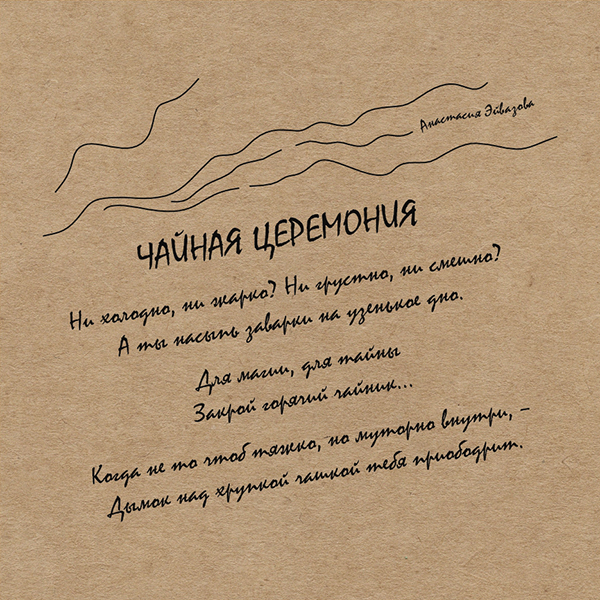 Анастасия Эйвазова
ЧАЙНАЯ ЦЕРЕМОНИЯ
Ни холодно, ни жарко? Ни грустно, ни смешно?
А ты насыпь заварки на узенькое дно.
Для магии, для тайны
Закрой горячий чайник...
Когда не то чтоб тяжко, но муторно внутри, –
Дымок над хрупкой чашкой тебя приободрит.